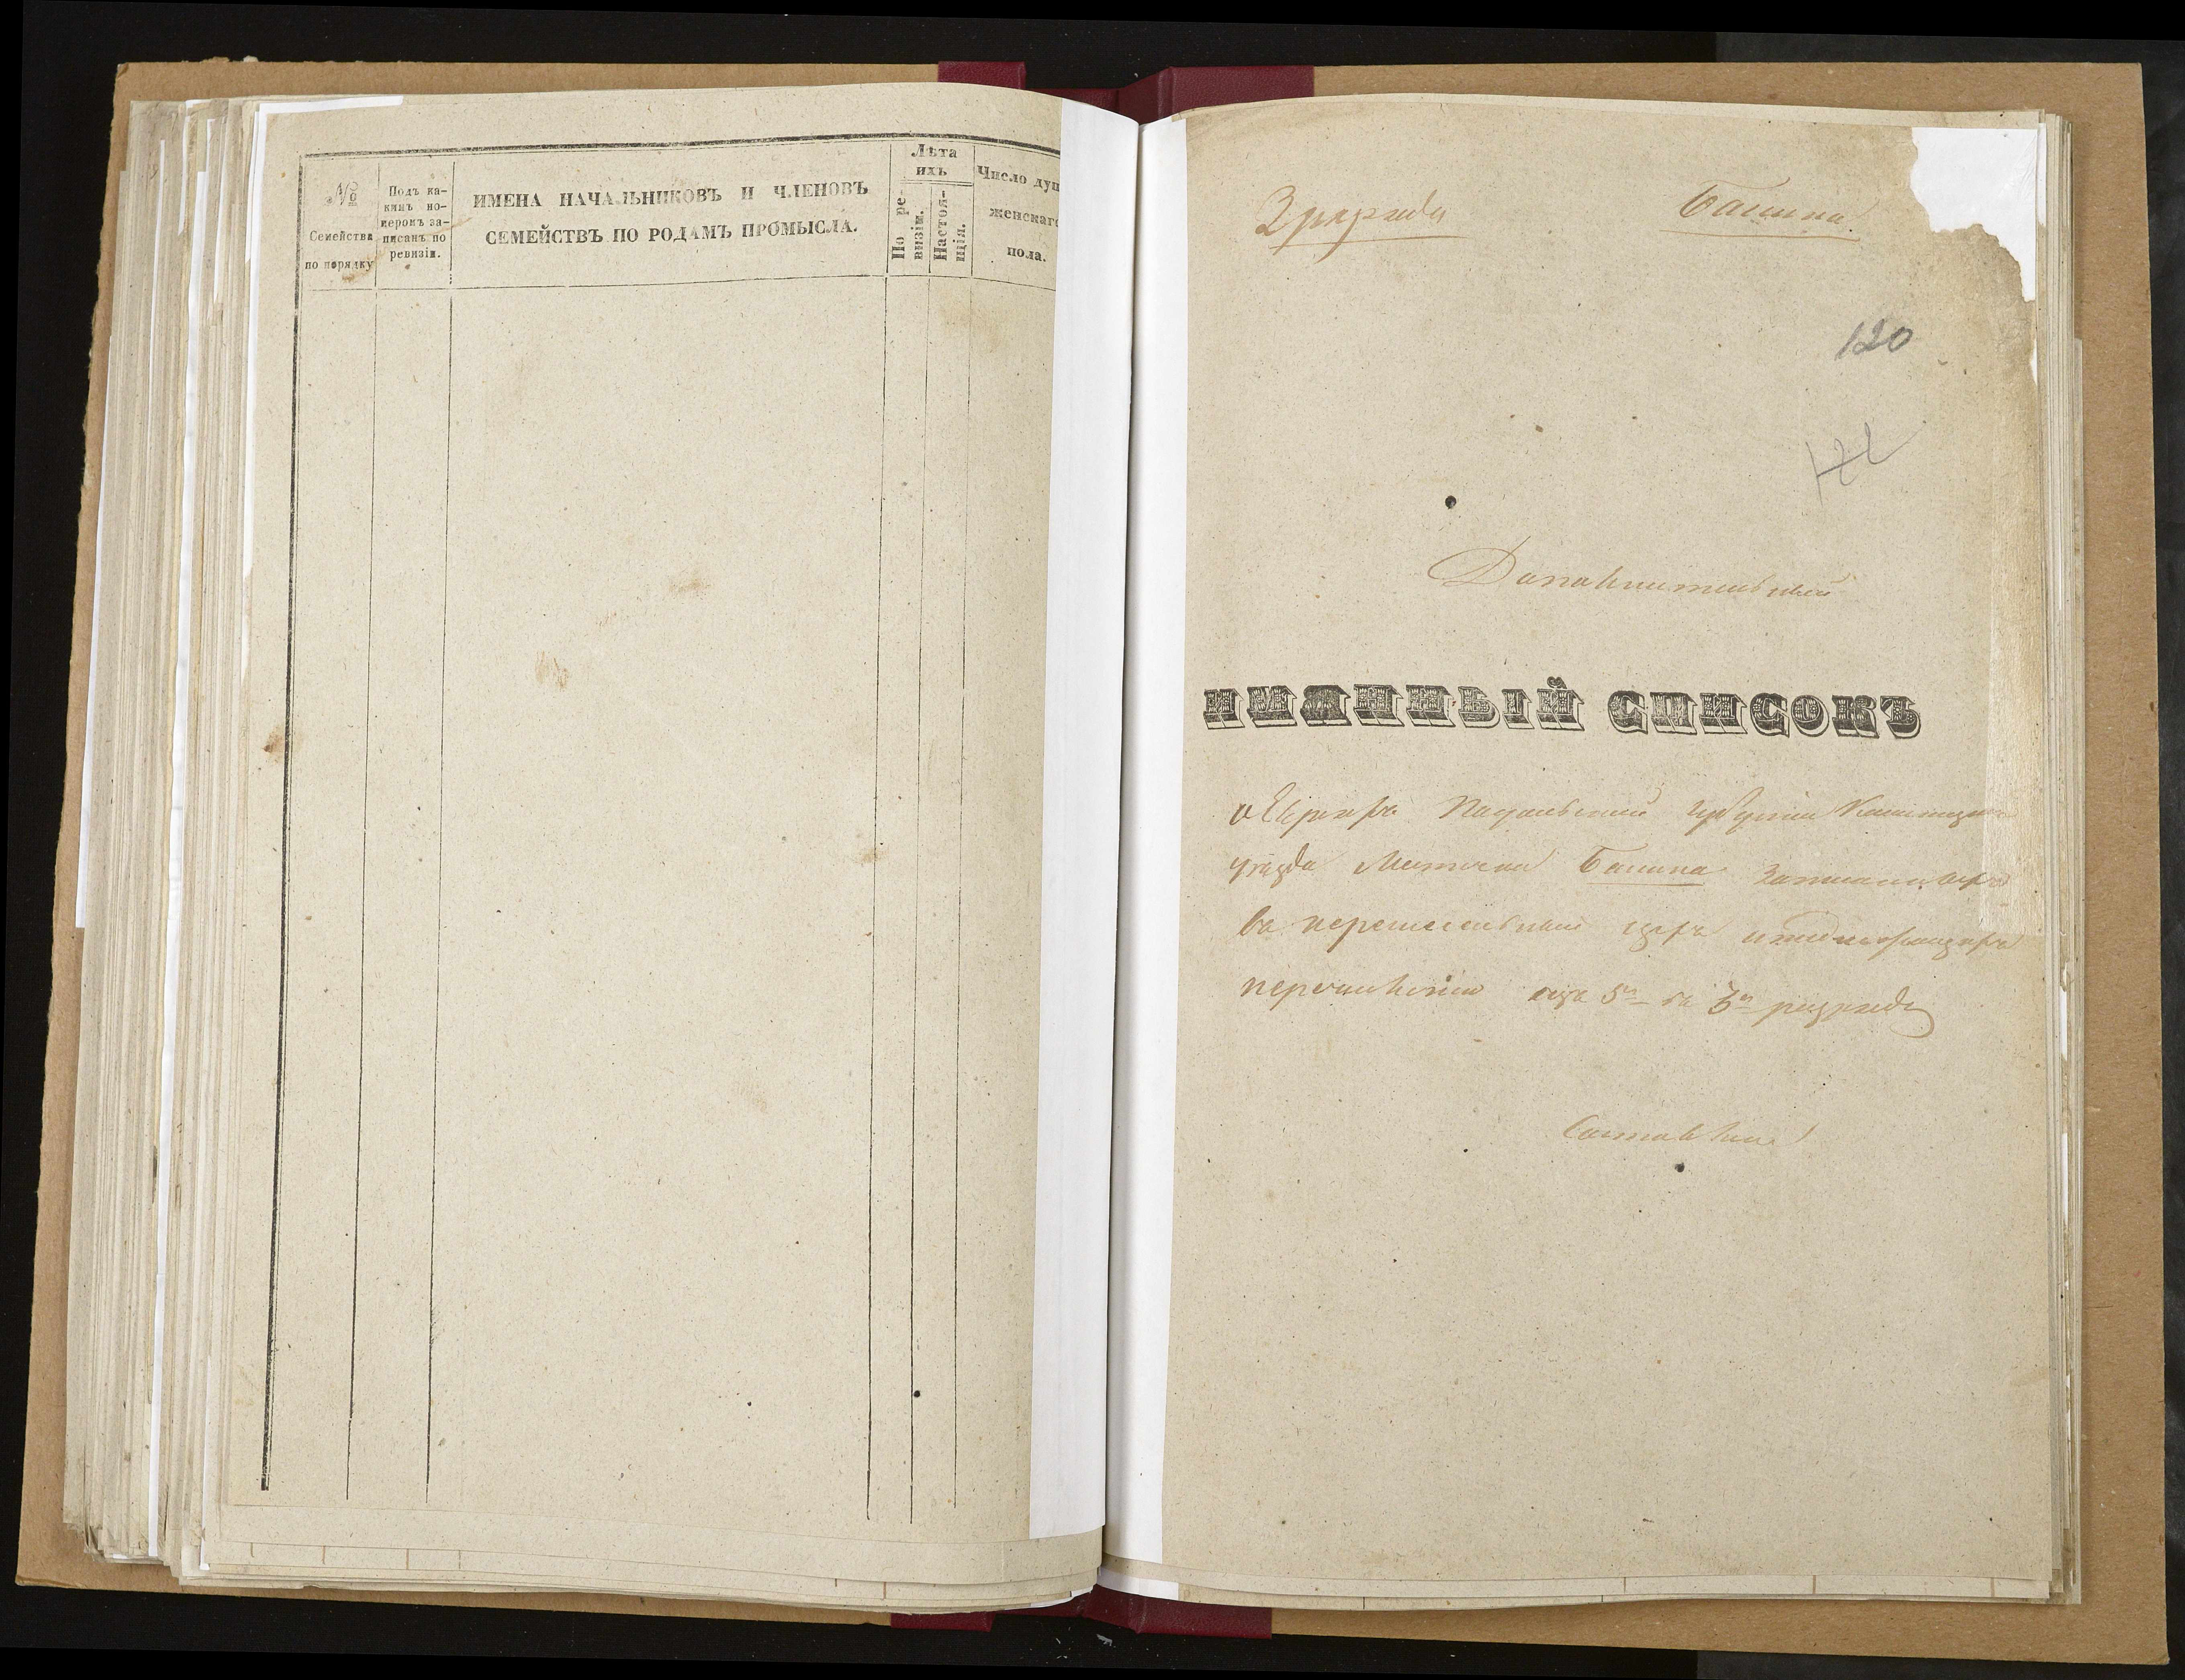 №
Семейства
по порядку
Подъ ка-
кимъ но-
меромъ за-
писанъ по
ревизіи.
ИМЕНА НАЧАЛЬНИКОВЪ И ЧЛЕНОВЪ
СЕМЕЙСТВЪ ПО РОДАМЪ ПРОМЫСЛА.
Лѣта
ихъ
По ре-
визіи.
Настоя-
щія.
Число душ
женскаго
пола.
3 разряда
Балина
120
122
Дополнительный
ИМЯННЫЙ СПИСОКЪ
о Евреяхъ Подольской губерніи
уѣзда Местечка Балина
въ
перечисленію изъ 5го въ 3й разрядъ